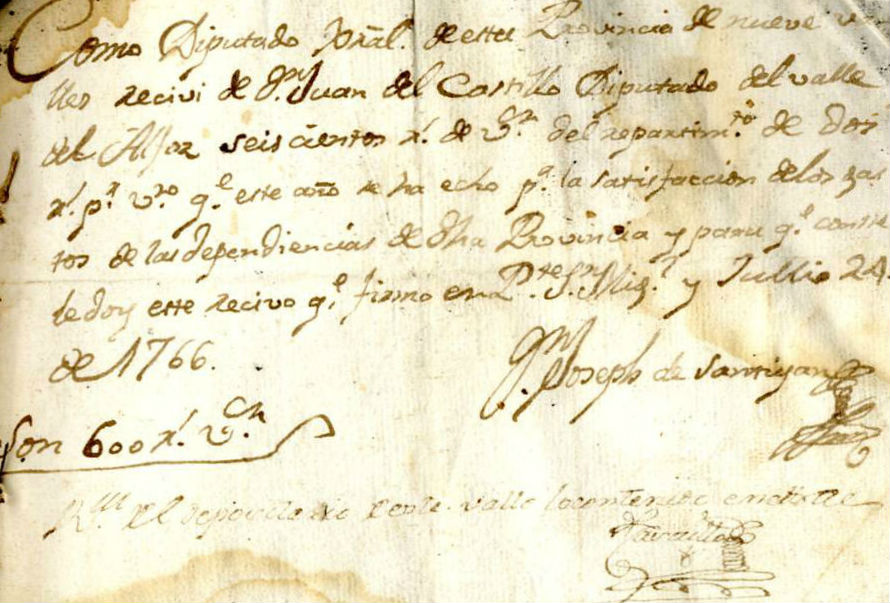 Como Diputado Gral. de esta Provincia de nueve va
lles recivi de Dn. Juan del Castillo Diputado del valle
del Alfoz seiscientos rs. de Vn. del repartimto. de dos
rs. pr. vno. qe. este año se ha echo pa. la satisfaccion delos gas
tos de las dependiencias de dha Provincia y para qe. conste
le doy este recivo qe. firmo en Pte. Sn. Migl. y Jullio 24
de 1766.
Dn. Joseph de Santiyan
Son 600 rs. Vn.
Rvi del depositario de este valle lo contenido en este
Castillo